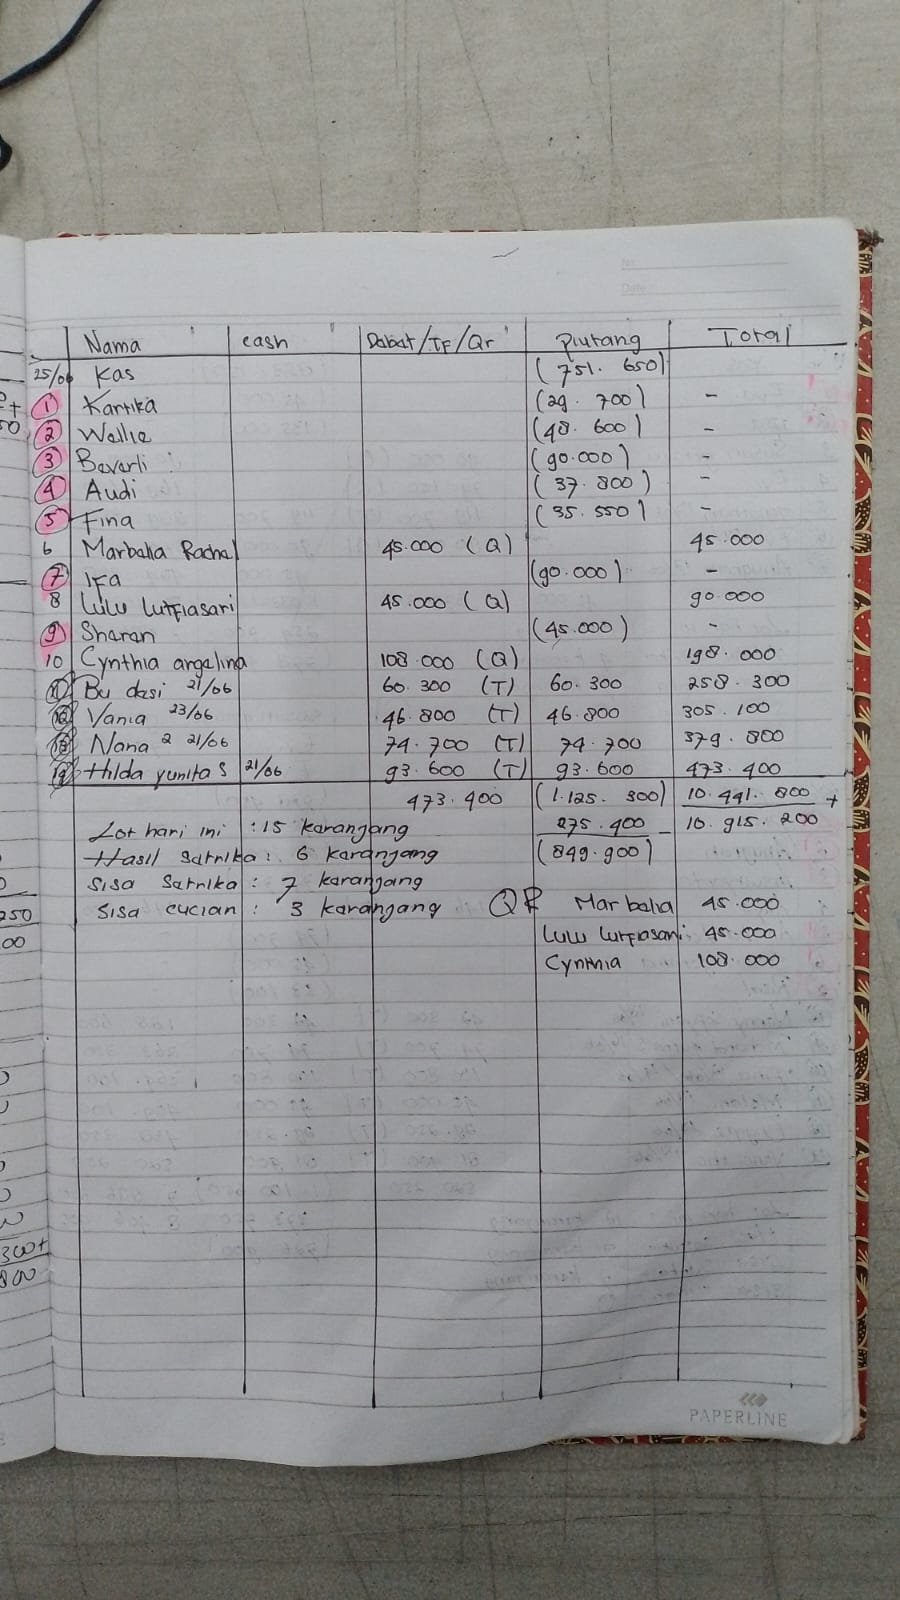 No
Date
Nama cash Dabat/TF/Qr Piutang Total
25/06 Kas (751. 650)
1 Kartika (29. 700) -
2 Wellie (48. 600) -
3 Beverli (90.000) -
4 Audi (37. 800) -
5 Fina (35. 550) -
6 Marbelia Rachel 45.000 (Q) 45.000
7 Ifa (90.000) -
8 Lulu Lutfiasari 45.000 (Q) 90.000
9 Sharen (45.000) -
10 Cynthia angelina 108.000 (Q) 198.000
11 Bu desi 21/06 60.300 (T) 60.300 258.300
12 Vania 23/06 46.800 (T) 46.800 305.100
13 Nana 2 21/06 74.700 (T) 74.700 379.800
14 Hilda yunita S 21/06 93.600 (T) 93.600 473.400
473.400 (1.125. 300) 10.441.800 +
Lot hari ini : 15 keranjang 275.400 - 10.915.200
Hasil Setrika : 6 keranjang (849.900)
Sisa Setrika : 7 keranjang
Sisa cucian : 3 keranjang QR Marbelia 45.000
Lulu Lutfiasari 45.000
Cynthia 108.000
PAPERLINE